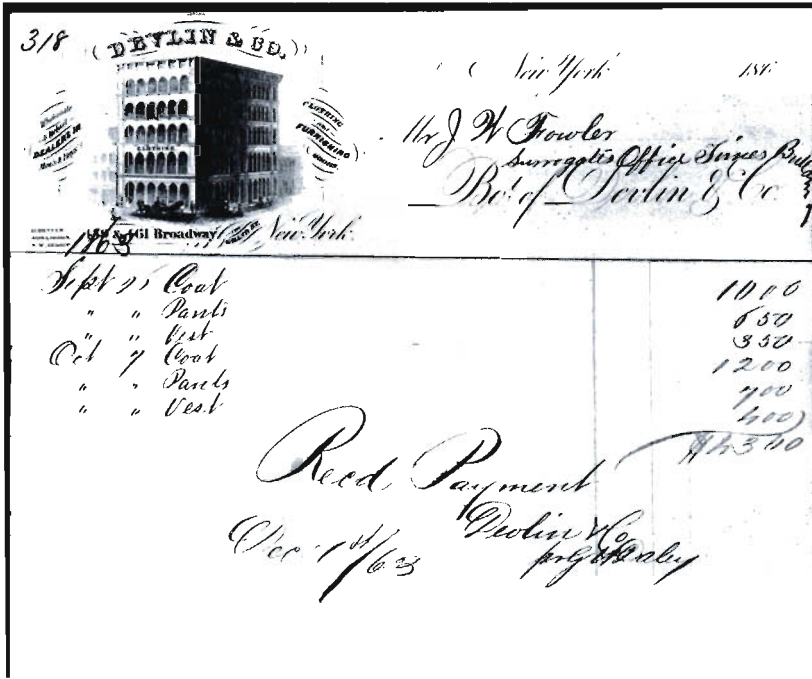 318
DEVLIN & CO.
DEALERS IN
CLOTHING
AND
FURNISHING
GOODS
CLOTHING
459 & 461 Broadway
GRAND ST.
New York.
New York 186
Mr J W Fowler
Surrogates Office Times
Bot of Devlin & Co
1863
Sept 25 Coat 1000
" " Pants 650
" " Vest 350
Oct 7 Coat 1200
" " Pants 700
" " Vest 400
$4300
Recd Payment
Devlin & Co
Dec 1st/63